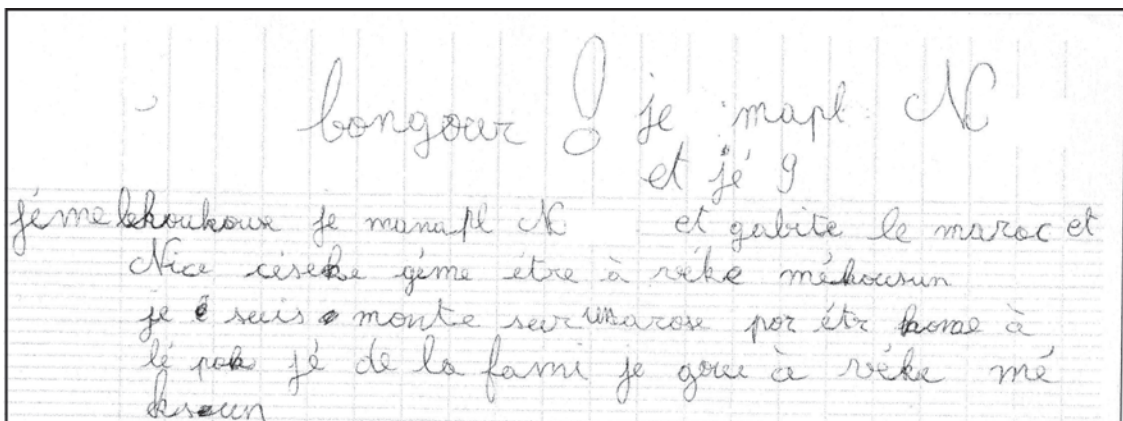 bongour ! je mapl N
et jé 9
jéme lekoukoux je manapl N et gabite le maroc et
Nice céseke géme étre à véke mékousun
je suis monte sur un arose por étr kome à
lé pak jé de la fami je goue à véke mé
ksoun